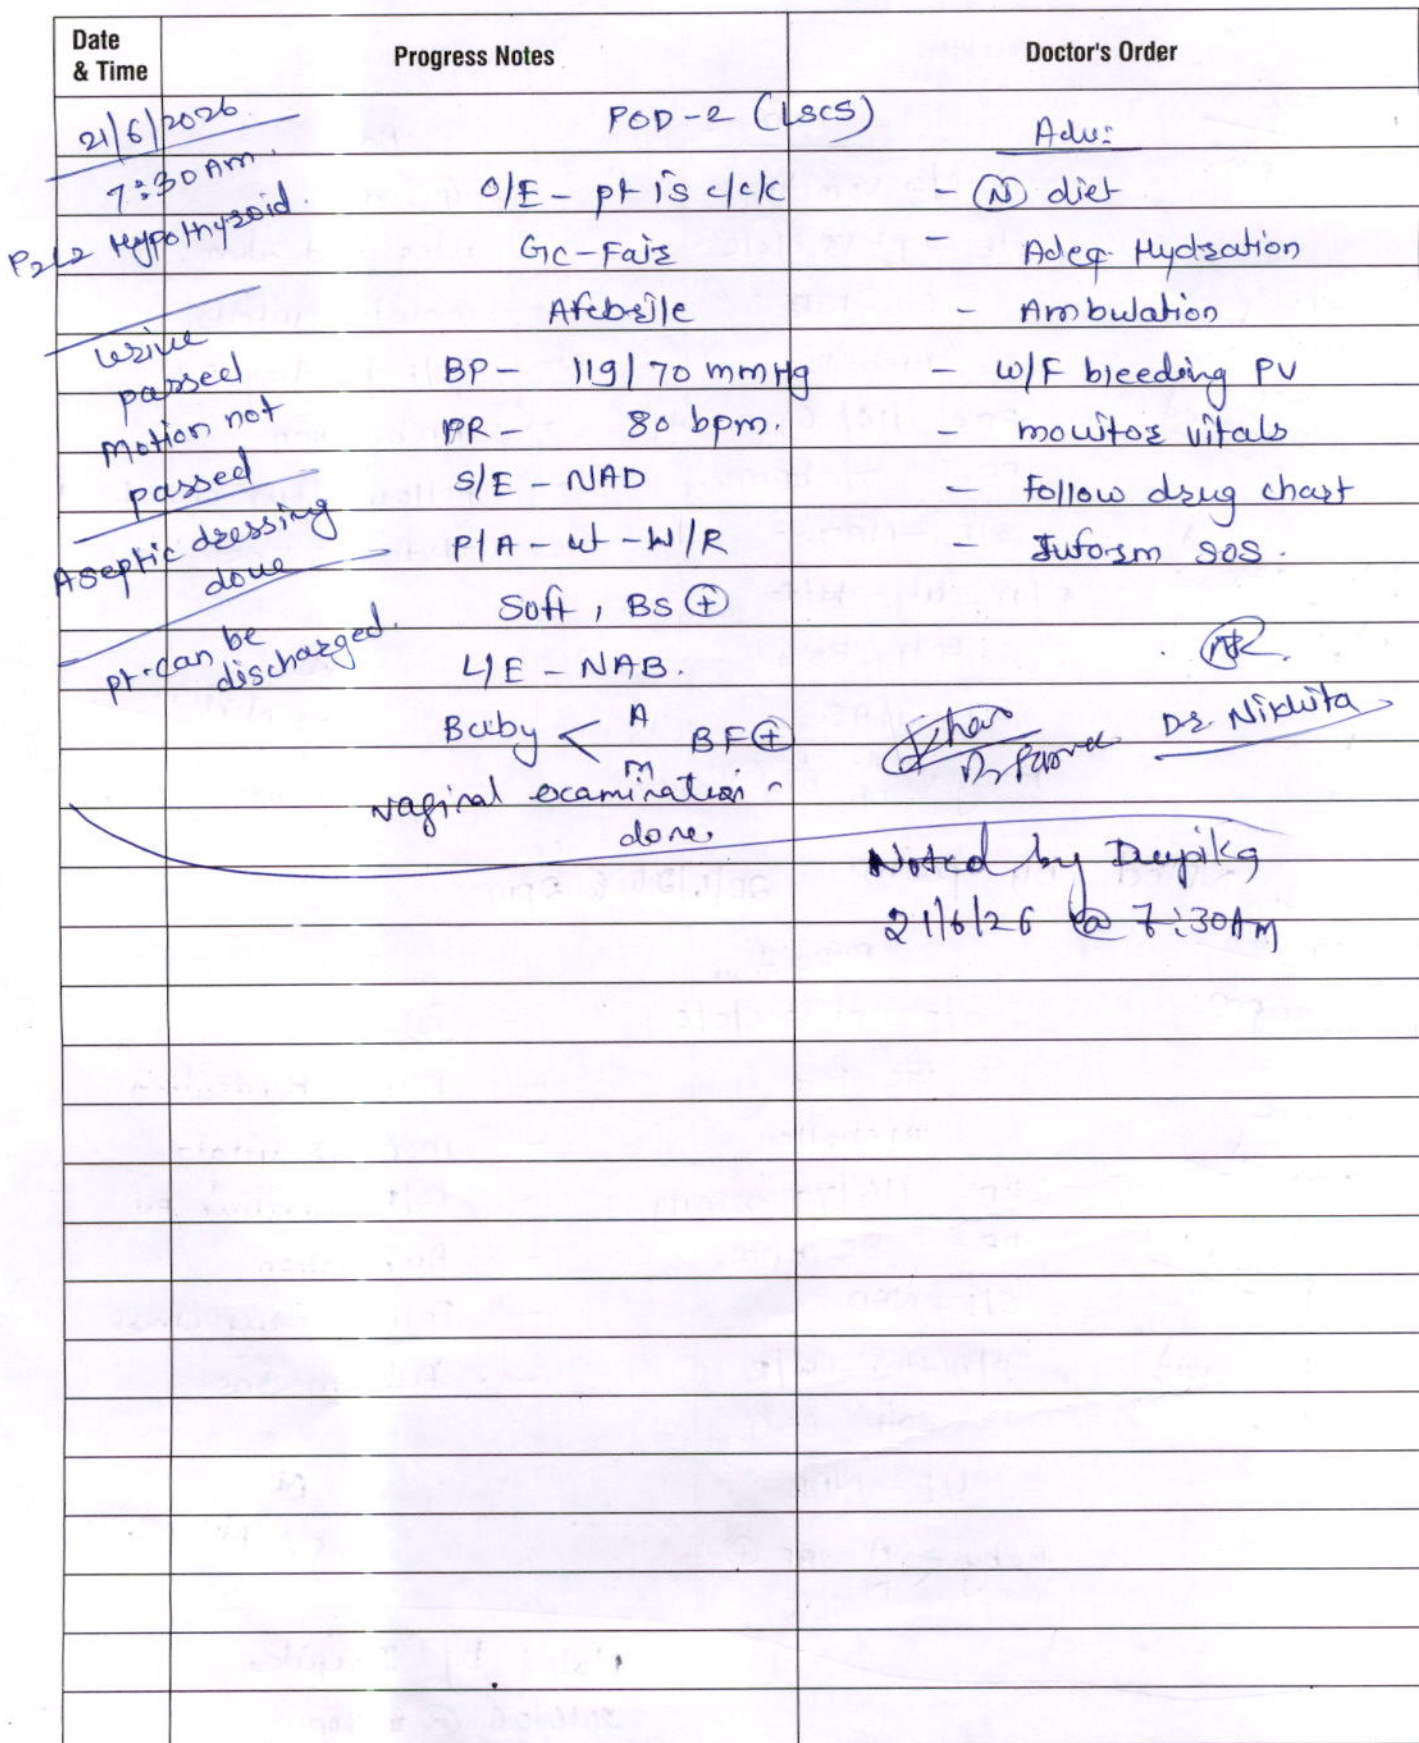 Date & Time
Progress Notes
Doctor's Order
21/6/2026
7:30 AM.
P2L2 Hypothyroid.
urine
passed
Motion not
passed
Aseptic dressing
done
pt. can be
discharged.
POD-2 (LSCS)
O/E - pt is c/c/c
GC - Fair
Afebrile
BP - 119/70 mmHg
PR - 80 bpm.
S/E - NAD
P/A - ut - W/R
Soft, BS ⊕
L/E - NAB.
Baby < A M BF ⊕
vaginal examination -
done
Adv:
- Ⓝ diet
- Adeq. Hydration
- Ambulation
- W/F bleeding PV
- monitor vitals
- Follow drug chart
- Inform SOS.
Dr. Nikhita
Noted by Deepika
21/6/26 @ 7:30AM